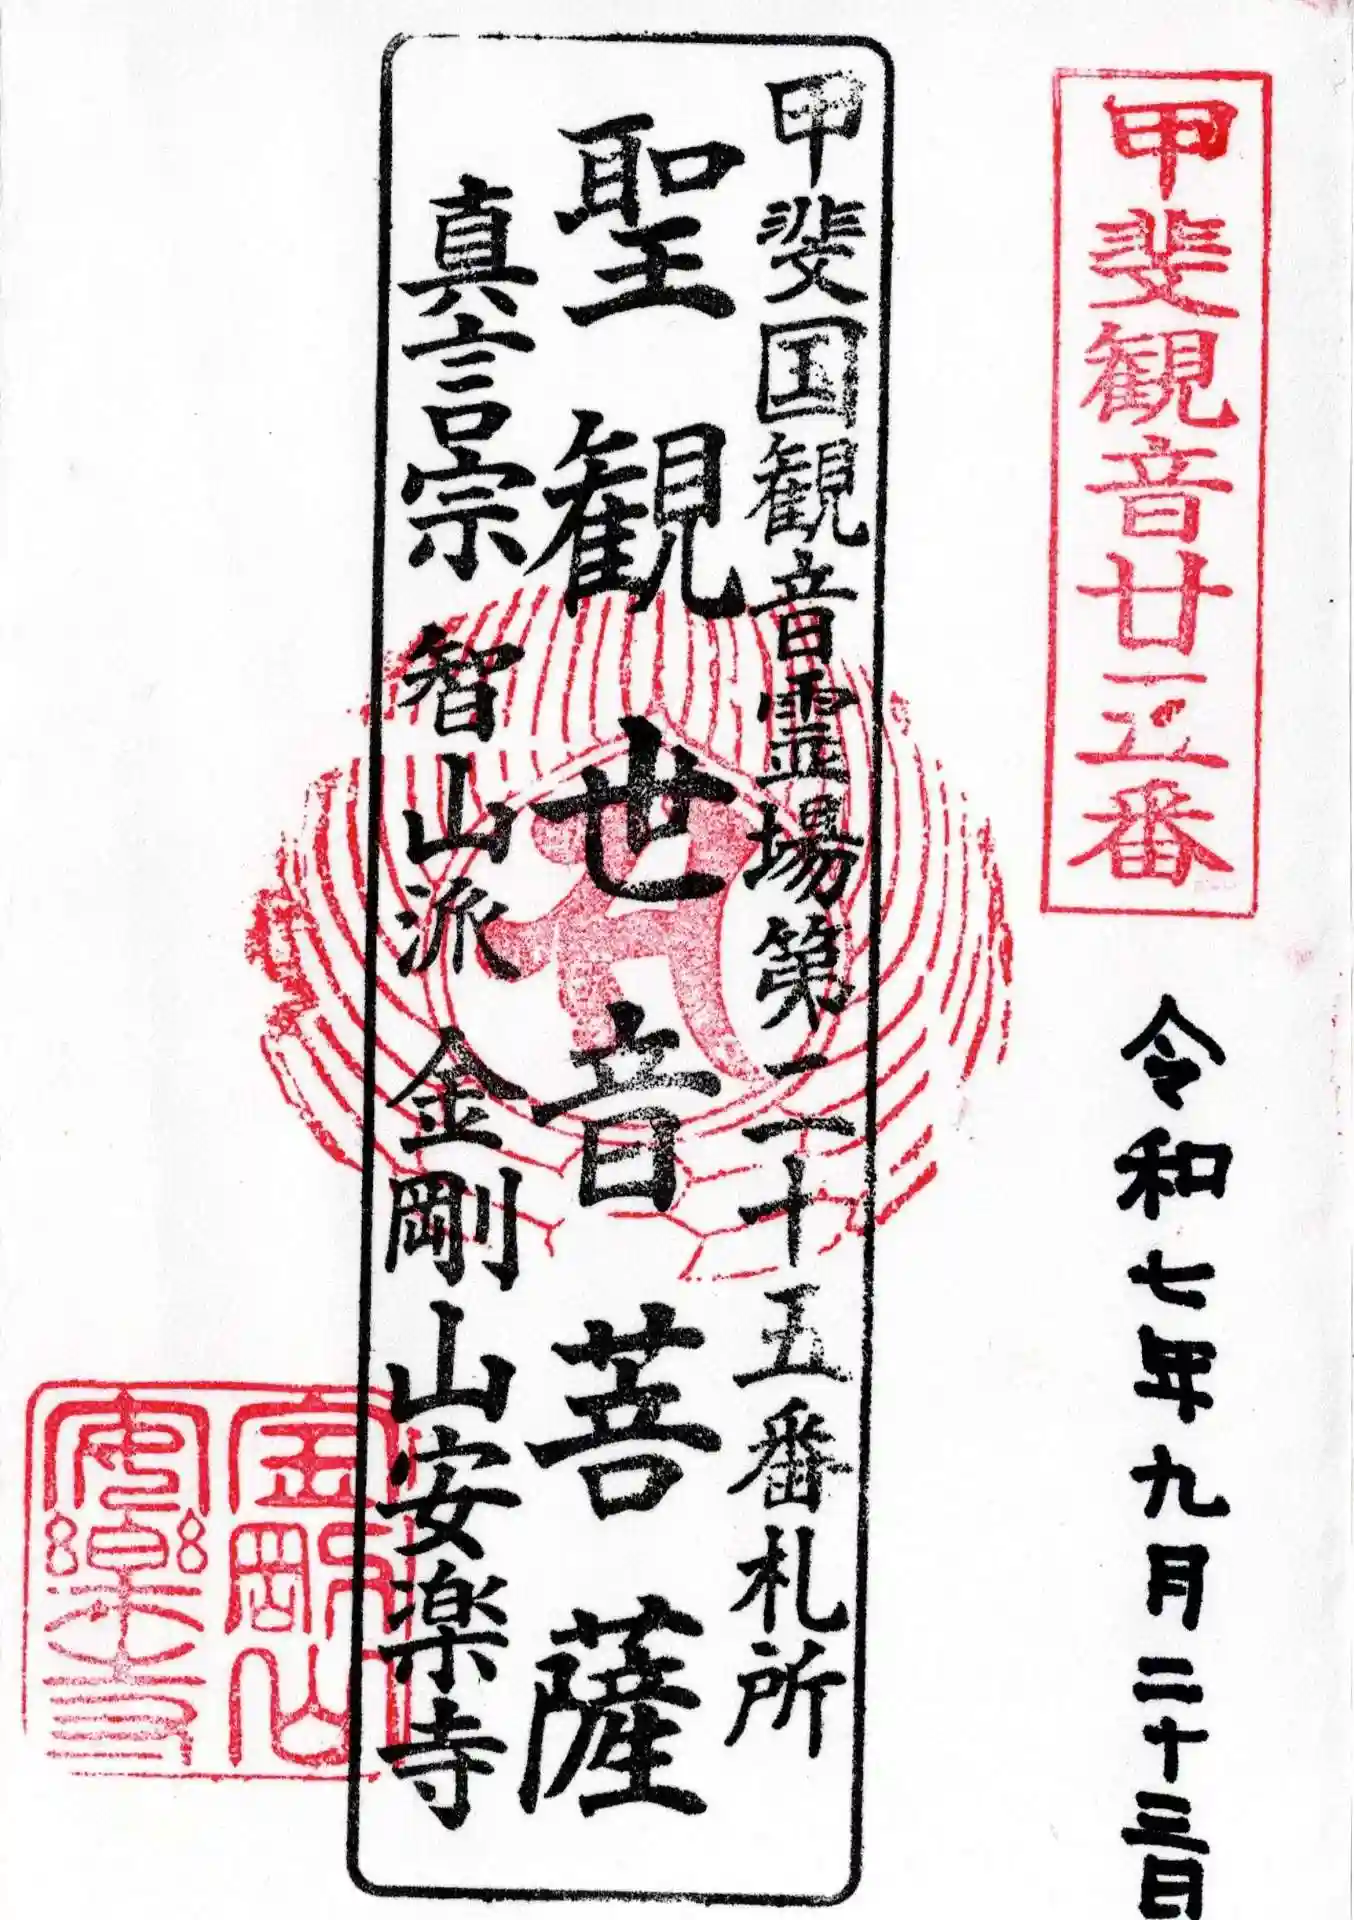 甲斐観音廿五番
令和七年九月二十三日
甲斐国観音霊場第二十五番札所
聖観世音菩薩
真言宗 智山派 金剛山安楽寺
金剛山
安楽寺